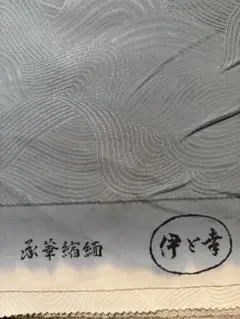 承華縮緬
伊と幸